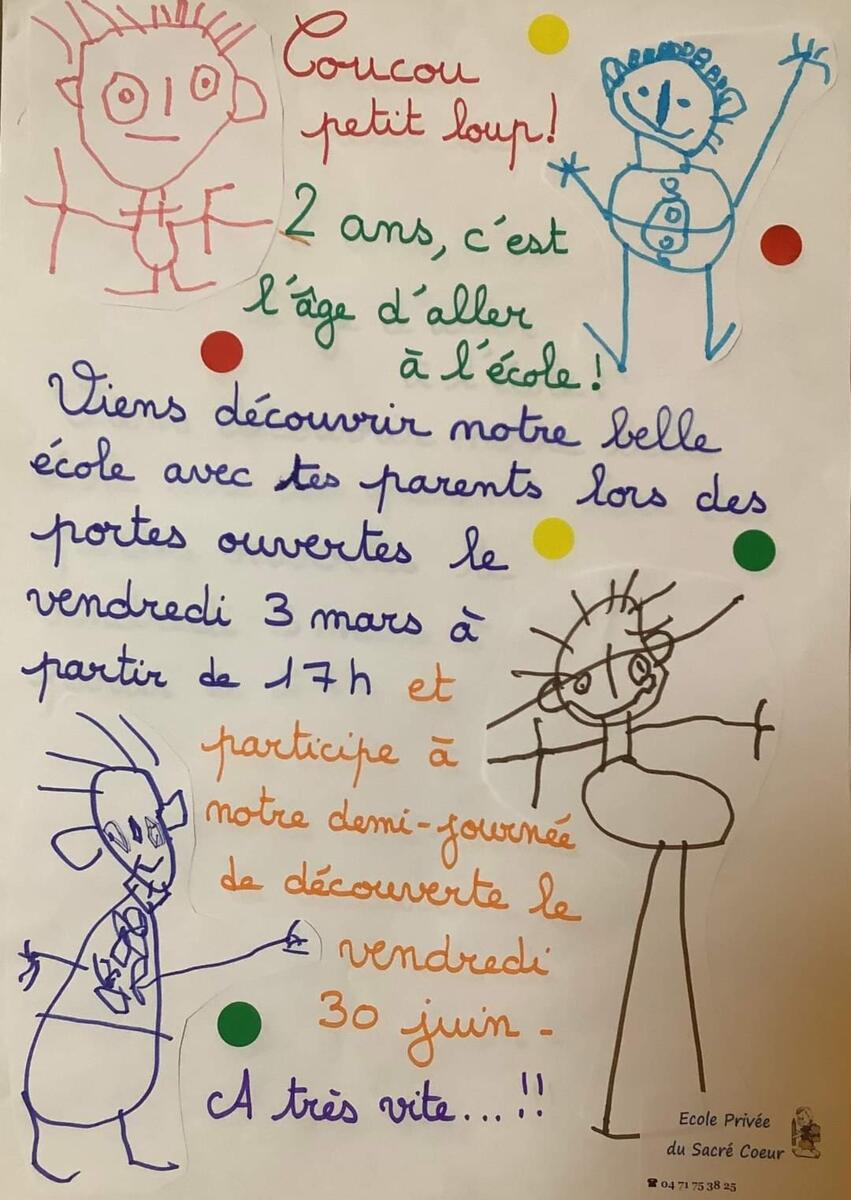 Coucou
petit loup!
2 ans, c'est
l'âge d'aller
à l'école!
Viens découvrir notre belle
école avec tes parents lors des
portes ouvertes le
vendredi 3 mars à
partir de 17h et
participe à
notre demi-journée
de découverte le
vendredi
30 juin -
A très vite...!!
Ecole Privée
du Sacré Coeur
☎ 04 71 75 38 25